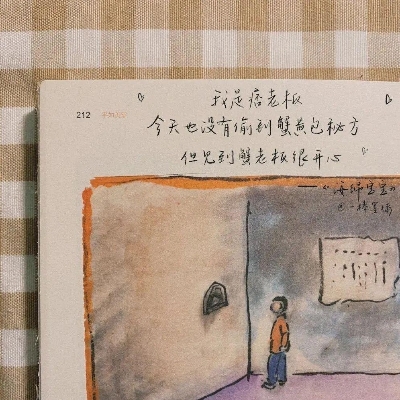 我是痞老板
今天也没有偷到蟹黄包秘方
但见到蟹老板很开心
212
——《海绵宝宝》